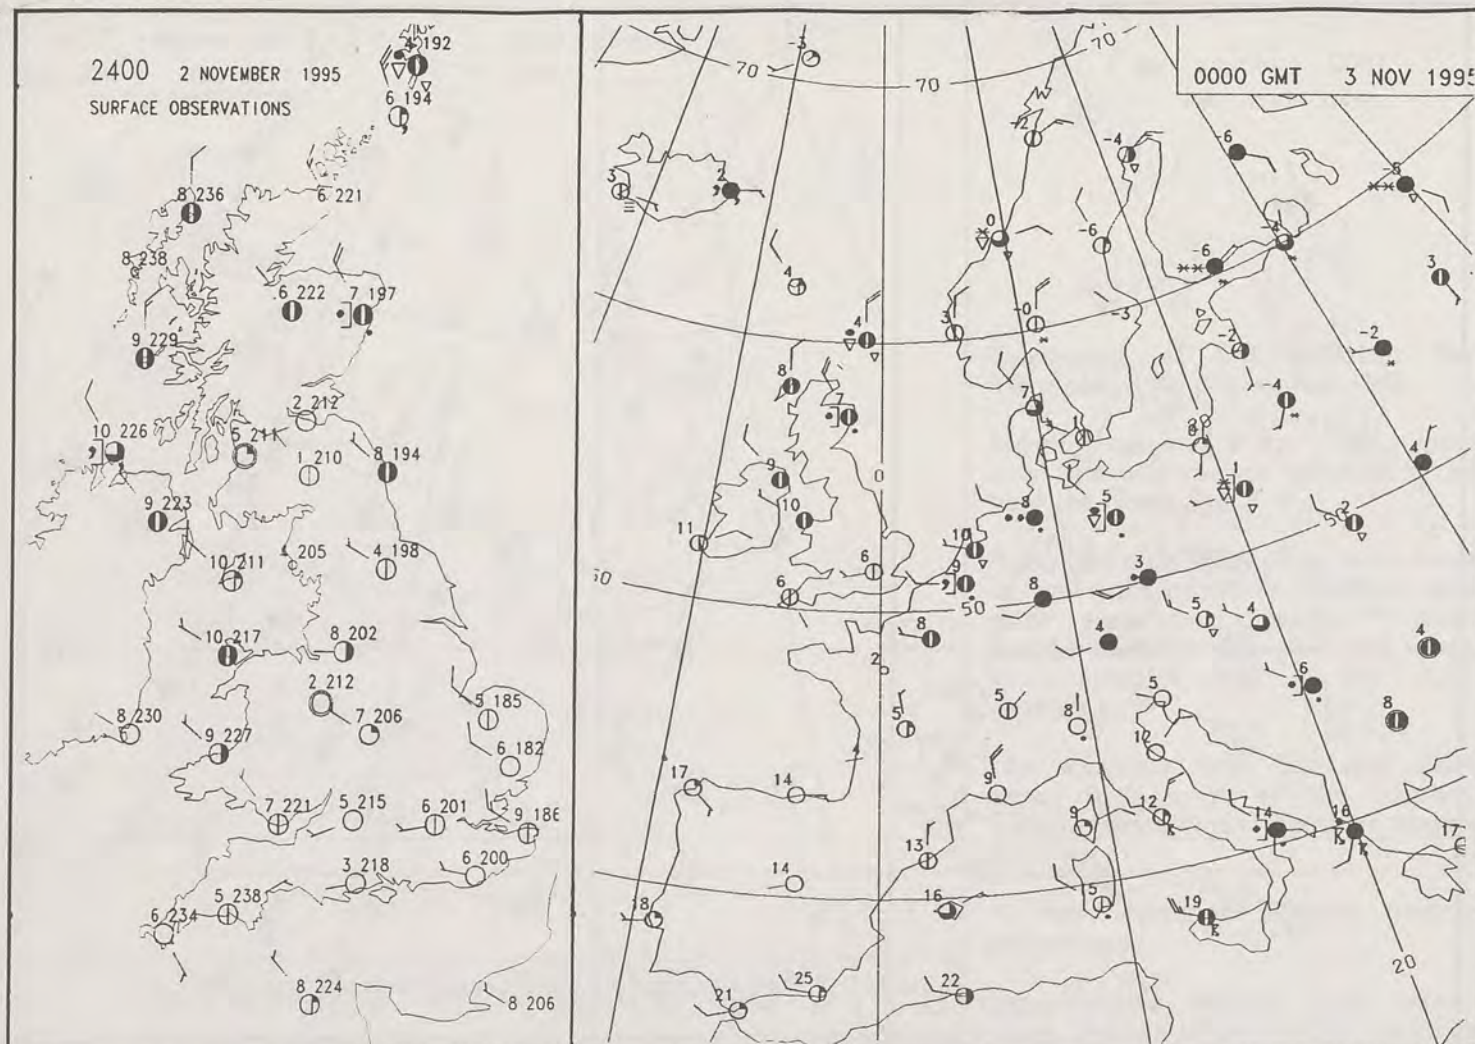 2400 2 NOVEMBER 1995
SURFACE OBSERVATIONS
4 192
6 194
8 236
6 221
8 238
6 222
7 197
9 229
2 212
10 226
5 211
1 210
8 194
9 223
10 211
4 205
4 198
10 217
8 202
2 212
5 185
8 230
7 206
9 227
6 182
7 221
5 215
6 201
9 186
3 218
6 200
5 238
6 234
8 224
8 206
0000 GMT 3 NOV 1995
-3
70
70
70
-2
-4
-6
3
2
0
-6
-4
-6
3
4
-0
-3
4
3
-2
-2
8
7
7
-4
1
4
9
0
8
5
1
2
50
10
11
10
6
9
3
6
8
50
5
4
8
4
4
2
6
5
5
8
5
8
12
17
14
9
9
12
14
16
17
13
14
16
5
19
18
20
25
21
22